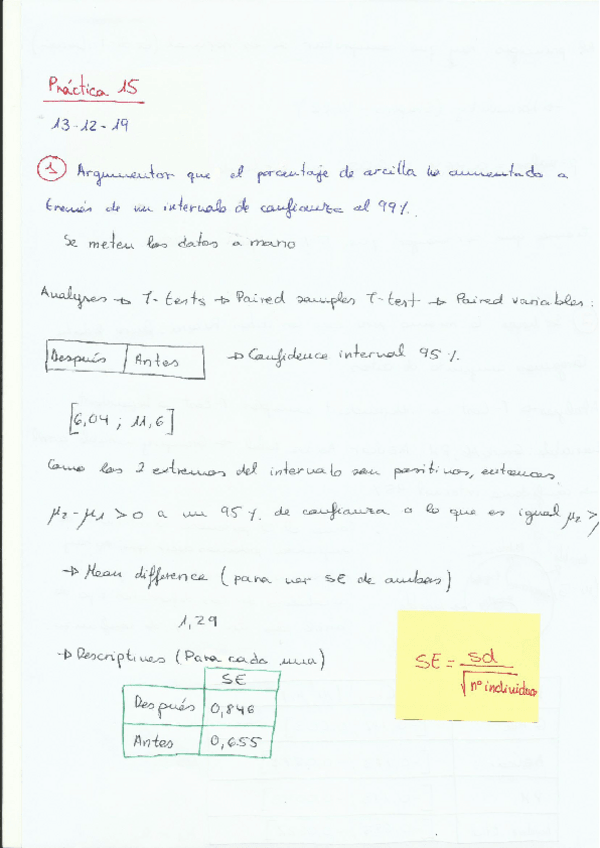 Práctica 15
13-12-19
1 Argumentar que el porcentaje de arcilla ha aumentado a
través de un intervalo de confianza al 99%.
Se meten los datos a mano
Analyses → T-tests → Paired samples T-test → Paired variables:
Después Antes → Confidence interval 95%.
[6,04 ; 11,6]
Como los 2 extremos del intervalo son positivos, entonces,
μ2-μ1 > 0 a un 95%. de confianza o lo que es igual μ2 >
→ Mean difference (para ver SE de ambas)
1,29
→ Descriptives (Para cada una)
SE
Después 0,846
Antes 0,655
SE = sd / √nº individuos